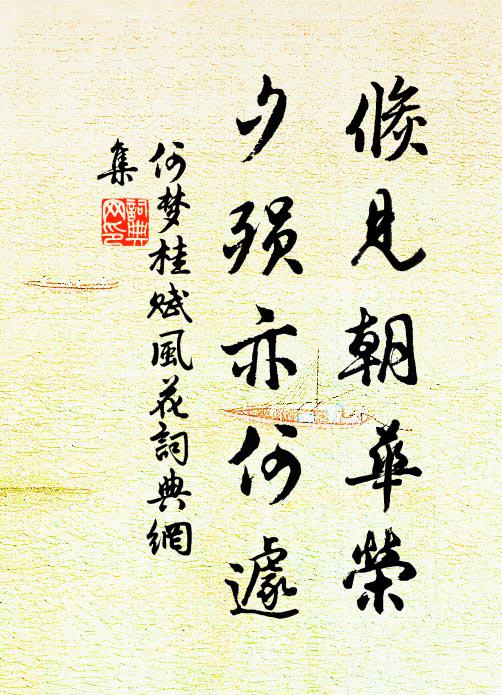 倏見朝華榮
夕殞亦何遽
何梦桂赋風花詞典網
集
詞典
网印